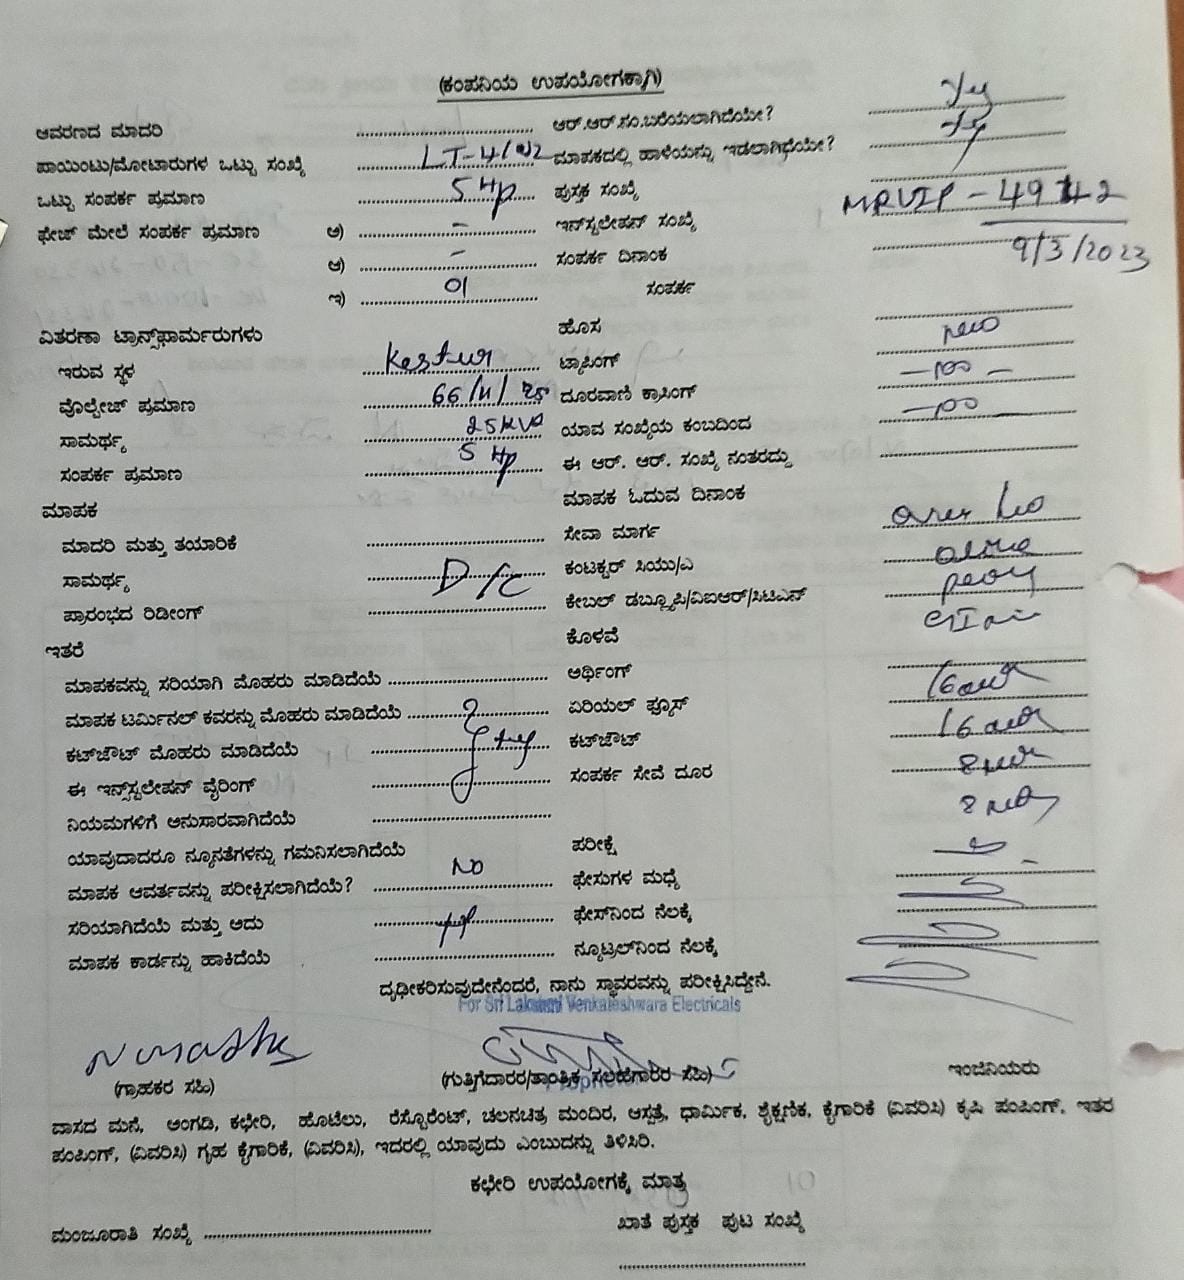 (ಕಂಪನಿಯ ಉಪಯೋಗಕ್ಕಾಗಿ)
ಆವರಣದ ಮಾದರಿ ........ ಆರ್.ಆರ್.ಸಂ.ಬರೆಯಲಾಗಿದೆಯೇ?
ಪಾಯಿಂಟು/ಮೋಟಾರುಗಳ ಒಟ್ಟು ಸಂಖ್ಯೆ ಮಾಪಕದಲ್ಲಿ ಹಾಳೆಯನ್ನು ಇಡಲಾಗಿದೆಯೇ?
ಒಟ್ಟು ಸಂಪರ್ಕ ಪ್ರಮಾಣ 5 Hp ಪುಸ್ತಕ ಸಂಖ್ಯೆ
ಫೇಜ್ ಮೇಲೆ ಸಂಪರ್ಕ ಪ್ರಮಾಣ ಅ) - ಇನ್‌ಸ್ಟಲೇಷನ್ ಸಂಖ್ಯೆ
ಆ) - ಸಂಪರ್ಕ ದಿನಾಂಕ 9/3/2023
ಇ) 01 ಸಂಪರ್ಕ
ವಿತರಣಾ ಟ್ರಾನ್ಸ್‌ಫಾರ್ಮರುಗಳು ಹೊಸ new
ಇರುವ ಸ್ಥಳ Kestur ಟ್ಯಾಪಿಂಗ್
ವೊಲ್ಟೇಜ್ ಪ್ರಮಾಣ 66/11/ ದೂರವಾಣಿ ಕ್ರಾಸಿಂಗ್
ಸಾಮರ್ಥ್ಯ 25KVA ಯಾವ ಸಂಖ್ಯೆಯ ಕಂಬದಿಂದ
ಸಂಪರ್ಕ ಪ್ರಮಾಣ 5 Hp ಈ ಆರ್. ಆರ್. ಸಂಖ್ಯೆ ನಂತರದ್ದು
ಮಾಪಕ ಮಾಪಕ ಓದುವ ದಿನಾಂಕ
ಮಾದರಿ ಮತ್ತು ತಯಾರಿಕೆ ........ ಸೇವಾ ಮಾರ್ಗ
ಸಾಮರ್ಥ್ಯ D/C ಕಂಟಕ್ಟರ್ ಸಿಯು/ಎ
ಪ್ರಾರಂಭದ ರಿಡೀಂಗ್ ........ ಕೇಬಲ್ ಡಬ್ಲ್ಯೂಪಿ/ವಿಐಆರ್/ಸಿಟಿಎನ್
ಇತರೆ ಕೊಳವೆ
ಮಾಪಕವನ್ನು ಸರಿಯಾಗಿ ಮೊಹರು ಮಾಡಿದೆಯೆ ........ ಅರ್ಥಿಂಗ್
ಮಾಪಕ ಟರ್ಮಿನಲ್ ಕವರನ್ನು ಮೊಹರು ಮಾಡಿದೆಯೆ ........ ಏರಿಯಲ್ ಫ್ಯೂಸ್
ಕಟ್‌ಜೌಟ್ ಮೊಹರು ಮಾಡಿದೆಯೆ ಕಟ್‌ಜೌಟ್
ಈ ಇನ್ಸ್‌ಸ್ಟಲೇಷನ್ ವೈರಿಂಗ್ ಸಂಪರ್ಕ ಸೇವೆ ದೂರ
ನಿಯಮಗಳಿಗೆ ಅನುಸಾರವಾಗಿದೆಯೆ ........
ಯಾವುದಾದರೂ ನ್ಯೂನತೆಗಳನ್ನು ಗಮನಿಸಲಾಗಿದೆಯೆ ಪರೀಕ್ಷೆ
ಮಾಪಕ ಆವರ್ತವನ್ನು ಪರೀಕ್ಷಿಸಲಾಗಿದೆಯೆ? No ಫೇಸುಗಳ ಮಧ್ಯೆ
ಸರಿಯಾಗಿದೆಯೆ ಮತ್ತು ಅದು ಫೇಸ್‌ನಿಂದ ನೆಲಕ್ಕೆ
ಮಾಪಕ ಕಾರ್ಡನ್ನು ಹಾಕಿದೆಯೆ ........ ನ್ಯೂಟ್ರಲ್‌ನಿಂದ ನೆಲಕ್ಕೆ
ದೃಢೀಕರಿಸುವುದೇನೆಂದರೆ, ನಾನು ಸ್ಥಾವರವನ್ನು ಪರೀಕ್ಷಿಸಿದ್ದೇನೆ.
For Sri Lakshmi Venkateshwara Electricals
(ಗ್ರಾಹಕರ ಸಹಿ) (ಗುತ್ತಿಗೆದಾರರ/ತಾಂತ್ರಿಕ ಸಲಹೆಗಾರರ ಸಹಿ) ಇಂಜಿನಿಯರು
Proprietor
ವಾಸದ ಮನೆ, ಅಂಗಡಿ, ಕಛೇರಿ, ಹೊಟೆಲು, ರೆಸ್ಟೊರೆಂಟ್, ಚಲನಚಿತ್ರ ಮಂದಿರ, ಆಸ್ಪತ್ರೆ, ಧಾರ್ಮಿಕ, ಶೈಕ್ಷಣಿಕ, ಕೈಗಾರಿಕೆ (ವಿವರಿಸಿ) ಕೃಷಿ ಪಂಪಿಂಗ್, ಇತರ
ಪಂಪಿಂಗ್, (ವಿವರಿಸಿ) ಗೃಹ ಕೈಗಾರಿಕೆ, (ವಿವರಿಸಿ), ಇದರಲ್ಲಿ ಯಾವುದು ಎಂಬುದನ್ನು ತಿಳಿಸಿರಿ.
ಕಛೇರಿ ಉಪಯೋಗಕ್ಕೆ ಮಾತ್ರ
ಮಂಜೂರಾತಿ ಸಂಖ್ಯೆ ........ ಖಾತೆ ಪುಸ್ತಕ ಪುಟ ಸಂಖ್ಯೆ